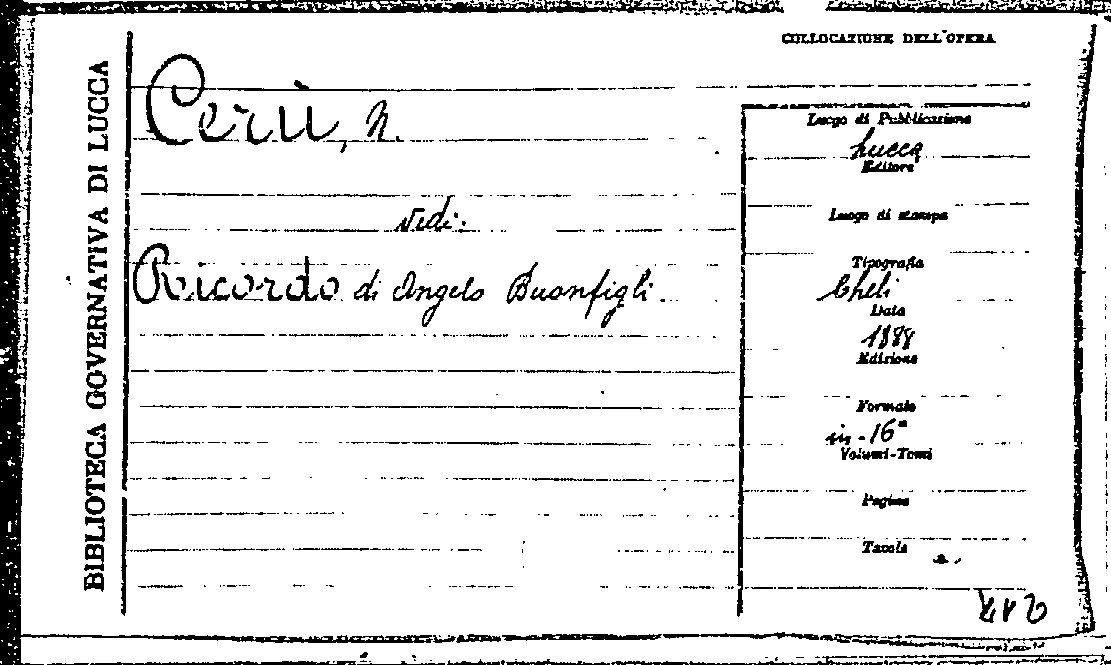 BIBLIOTECA GOVERNATIVA DI LUCCA
COLLOCAZIONE DELL'OPERA
Cerù, N.
vedi:
Ricordo di Angelo Buonfigli.
Luogo di Pubblicazione
Lucca
Editore
Luogo di stampa
Tipografia
Cheli
Data
1888
Edizione
Formato
in-16°
Volumi-Tomi
Pagine
Tavole